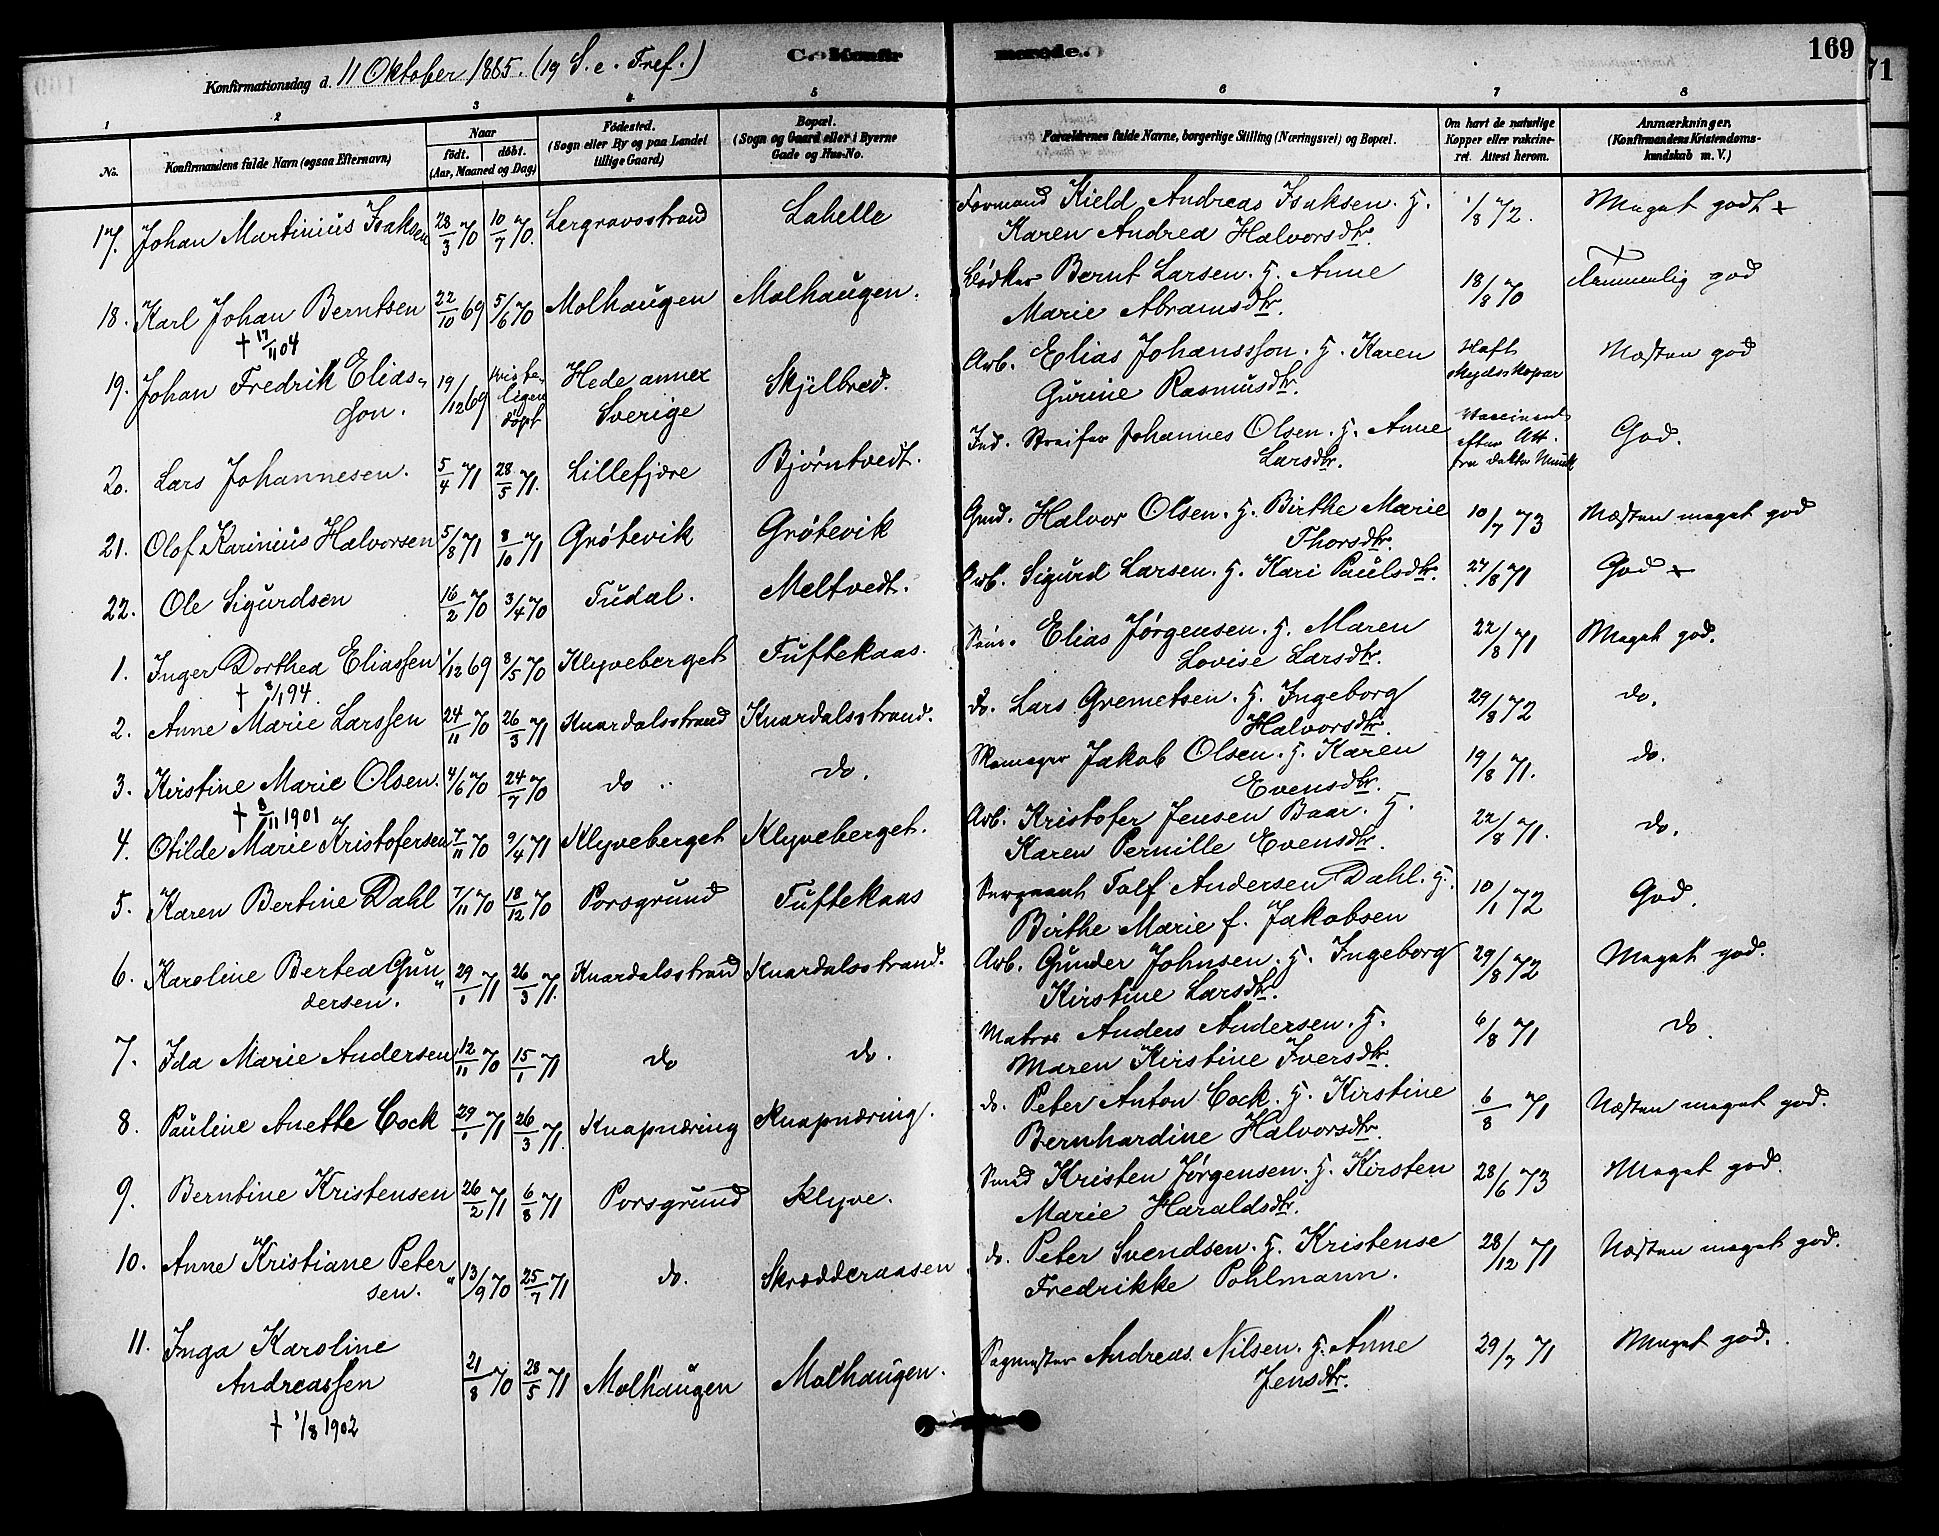 Konfirmationsdag d. 11 Oktober 1885. (19 S. e. Tref.) Konfirmerede. 169
71
1 2 3 4 5 6 7 8
No. Konfirmandens fulde Navn (ogsaa Efternavn) Naar født. døbt. (Aar, Maaned og Dag) Fødested. (Sogn eller By og paa Landet tillige Gaard) Bopæl. (Sogn og Gaard eller i Byerne Gade og Hus-No. Forældrenes fulde Navne, borgerlige Stilling (Næringsvei) og Bopæl. Om havt de naturlige Kopper eller vakcineret. Attest herom. Anmærkninger, (Konfirmandens Kristendomskundskab m. V.)
17. Johan Martinius Isaksen 28/3 70 10/7 70. Lergravsstrand Lahelle Formand Kield Andreas Isaksen. H. 1/8 72. Meget godt +
Karen Andrea Halvorsdtr.
18. Karl Johan Berntsen 22/10 69 5/6 70 Molhaugen Molhaugen. Bødker Bernt Larsen. H. Anne 18/8 70 Temmelig god
† 17/11 04 Marie Abramsdtr.
19. Johan Fredrik Elias- 19/12 69 Hede annex Skjelbred. Arb. Elias Johansson. H. Karen Haft Næsten god
son. døpt Sverige Gurine Rasmusdtr. skydskopar
20. Lars Johannesen. 5/4 71 28/5 71. Lillefjære Bjørntvedt. Ind. Johannes Olsen. H. Anne Vaccineret God.
Larsdtr. efter Att. fra doktor Munk
21. Olof Karinius Halvorsen 5/8 71 8/10 71 Grøtevik Grøtevik Gmd. Halvor Olsen. H. Birthe Marie 10/7 73 Næsten meget god
Thorsdtr.
22. Ole Sigurdsen 16/2 70 3/4 70 Tudal. Meltvedt. Arb. Sigurd Larsen. H. Kari Paulsdtr. 27/8 71 God +
1. Inger Dorthea Eliassen 1/12 69 8/5 70 Klyveberget Tuftekaas. Elias Jørgensen. H. Maren 22/8 71 Meget god.
† 8/1 94. Lovise Larsdtr.
2. Anne Marie Larssen 24/11 70 26/3 71 Knardalsstrand Knardalsstrand. do. Lars Gremetsen. H. Ingeborg 29/8 72 do.
Halvorsdtr.
3. Kirstine Marie Olsen. 4/6 70 24/7 70 do do. Skomager Jakob Olsen. H. Karen 19/8 71. do.
† 8/11 1901 Evensdtr.
4. Otilde Marie Kristofersen 7/11 70 9/4 71 Klyveberget Klyveberget. Arb. Kristofer Jensen Baar. H. 22/8 71. do.
Karen Pernille Evensdtr.
5. Karen Bertine Dahl 7/11 70 18/12 70 Porsgrund Tuftekaas Sergeant Tolf Andersen Dahl. H. 10/1 72 God.
Birthe Marie f. Jakobsen
6. Karoline Bertea Gun- 29/1 71 26/3 71. Knardalsstrand Knardalsstrand. Arb. Gunder Johnsen. H. Ingeborg 29/8 72 Meget god.
dersen. Kirstine Larsdtr.
7. Ida Marie Andersen 12/11 70 15/1 71 do do. Matros Anders Andersen. H. 6/8 71 do.
Maren Kirstine Iversdtr.
8. Pauline Anette Cock 29/1 71 26/3 71. Knapnæring Knapnæring. do. Peter Anton Cock. H. Kirstine 6/8 71 Næsten meget god.
Bernhardine Halvorsdtr.
9. Berntine Kristensen 26/2 71 6/8 71 Porsgrund Klyve. Kristen Jørgensen. H. Kirsten 28/6 73 Meget god.
Marie Haraldsdtr.
10. Anne Kristiane Peter- 13/9 70 25/7 71 do. Skrædderaasen do. Peter Svendsen. H. Kristense 28/12 71 Næsten meget god.
sen. Fredrikke Pohlmann.
11. Inga Karoline Andreas Nilsen. H. Anne 29/7 71 Meget god.
Andreassen 21/8 70 28/5 71 Molhaugen Molhaugen. Jensdtr.
† 1/8 1902